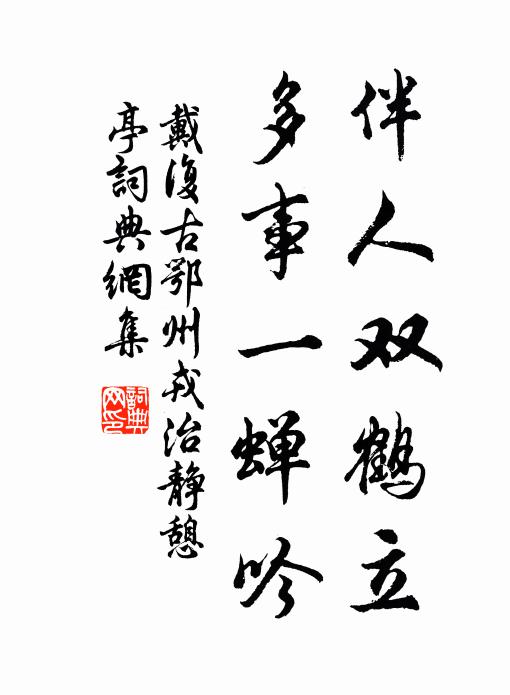 伴人双鹤立
多事一蝉吟
戴復古鄂州戎治静憩
亭詞典網集
詞典
网印